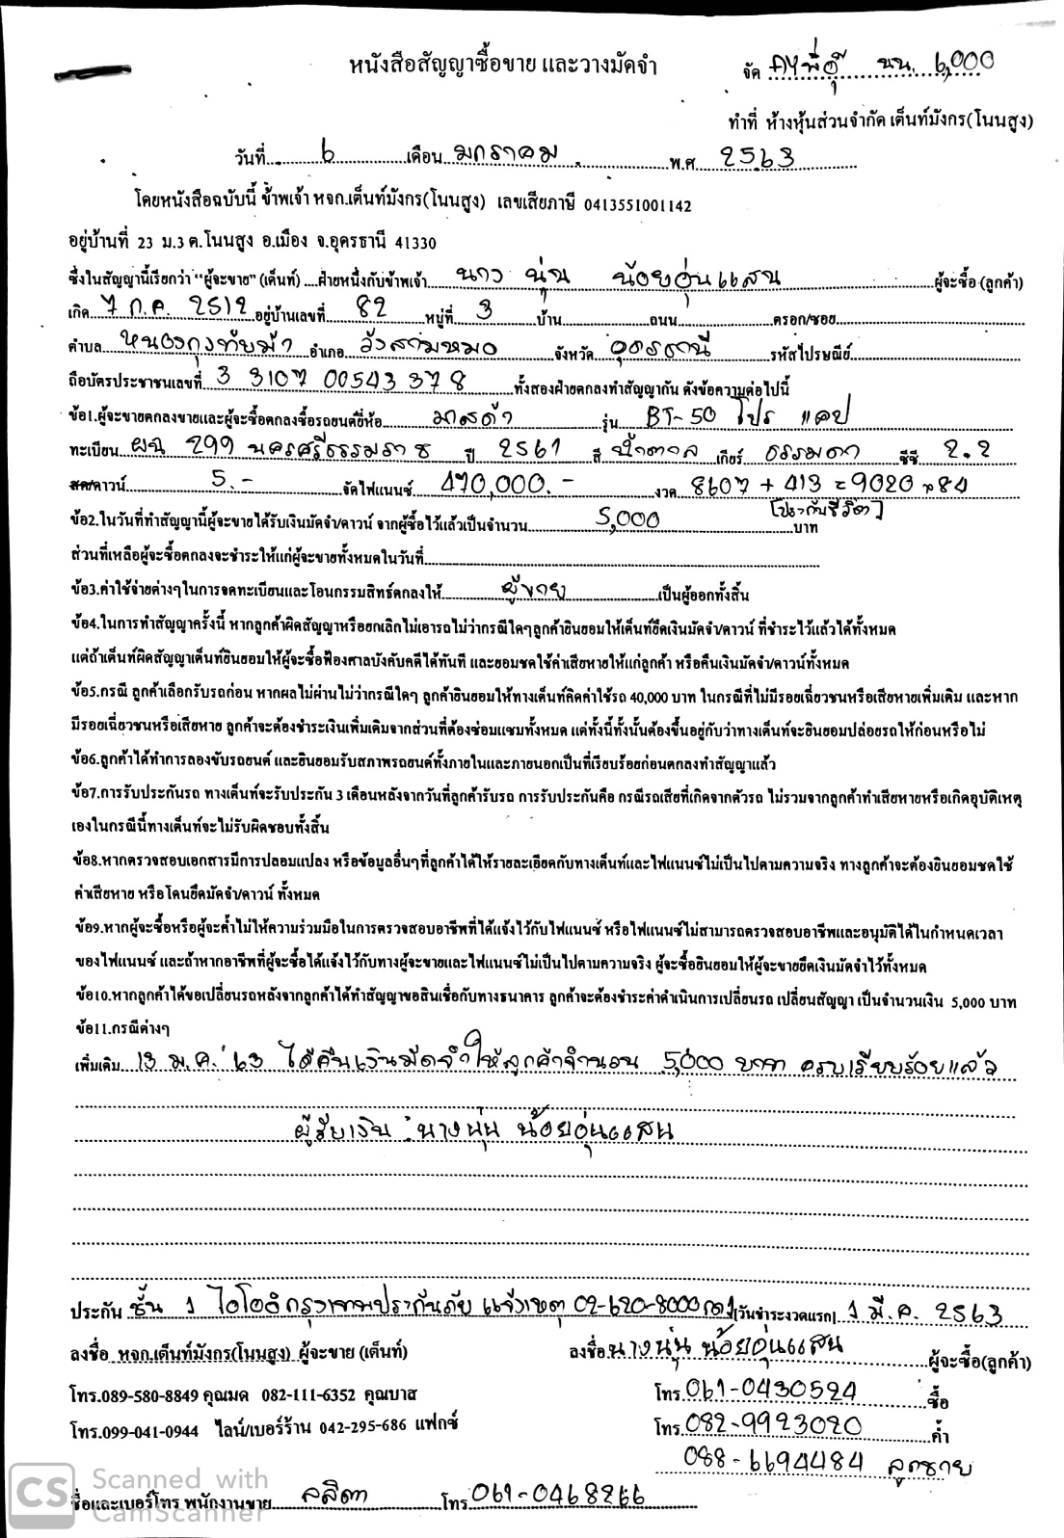 หนังสือสัญญาซื้อขาย และวางมัดจำ
จัด AY พี่อุ๊ นน. 6,000
ทำที่ ห้างหุ้นส่วนจำกัด เต็นท์มังกร(โนนสูง)
วันที่ 6 เดือน มกราคม พ.ศ. 2563
โดยหนังสือฉบับนี้ ข้าพเจ้า หจก.เต็นท์มังกร(โนนสูง) เลขเสียภาษี 0413551001142
อยู่บ้านที่ 23 ม.3 ต.โนนสูง อ.เมือง จ.อุดรธานี 41330
ซึ่งในสัญญานี้เรียกว่า "ผู้จะขาย" (เต็นท์) ....ฝ่ายหนึ่งกับข้าพเจ้า นาง นุ่น น้อยอุ่นแสน ผู้จะซื้อ (ลูกค้า)
เกิด 7 ก.ค. 2512 อยู่บ้านเลขที่ 82 หมู่ที่ 3 บ้าน ถนน ตรอก/ซอย
ตำบล หนองกุงทับม้า อำเภอ วังสามหมอ จังหวัด อุดรธานี รหัสไปรษณีย์
ถือบัตรประชาชนเลขที่ 3 3107 00543 378 ทั้งสองฝ่ายตกลงทำสัญญากัน ดังข้อความต่อไปนี้
ข้อ1.ผู้จะขายตกลงขายและผู้จะซื้อตกลงซื้อรถยนต์ยี่ห้อ มาสด้า รุ่น BT-50 โปร แคป
ทะเบียน ผฉ 299 นครศรีธรรมราช ปี 2561 สี น้ำตาล เกียร์ ธรรมดา ซีซี 2.2
สด/ดาวน์ 5.- จัดไฟแนนซ์ 470,000.- งวด 8607 + 413 = 9020 × 84
[ประกันชีวิต]
ข้อ2.ในวันที่ทำสัญญานี้ผู้จะขายได้รับเงินมัดจำ/ดาวน์ จากผู้ซื้อไว้แล้วเป็นจำนวน 5,000 บาท
ส่วนที่เหลือผู้จะซื้อตกลงจะชำระให้แก่ผู้จะขายทั้งหมดในวันที่
ข้อ3.ค่าใช้จ่ายต่างๆในการจดทะเบียนและโอนกรรมสิทธ์ตกลงให้ ผู้ขาย เป็นผู้ออกทั้งสิ้น
ข้อ4.ในการทำสัญญาครั้งนี้ หากลูกค้าผิดสัญญาหรือยกเลิกไม่เอารถไม่ว่ากรณีใดๆลูกค้ายินยอมให้เต็นท์ยึดเงินมัดจำ/ดาวน์ ที่ชำระไว้แล้วได้ทั้งหมด
แต่ถ้าเต็นท์ผิดสัญญาเต็นท์ยินยอมให้ผู้จะซื้อฟ้องศาลบังคับคดีได้ทันที และยอมชดใช้ค่าเสียหายให้แก่ลูกค้า หรือคืนเงินมัดจำ/ดาวน์ทั้งหมด
ข้อ5.กรณี ลูกค้าเลือกรับรถก่อน หากผลไม่ผ่านไม่ว่ากรณีใดๆ ลูกค้ายินยอมให้ทางเต็นท์คิดค่าใช้รถ 40,000 บาท ในกรณีที่ไม่มีรอยเฉี่ยวชนหรือเสียหายเพิ่มเติม และหาก
มีรอยเฉี่ยวชนหรือเสียหาย ลูกค้าจะต้องชำระเงินเพิ่มเติมจากส่วนที่ต้องซ่อมแซมทั้งหมด แต่ทั้งนี้ทั้งนั้นต้องขึ้นอยู่กับว่าทางเต็นท์จะยินยอมปล่อยรถให้ก่อนหรือไม่
ข้อ6.ลูกค้าได้ทำการลองขับรถยนต์ และยินยอมรับสภาพรถยนต์ทั้งภายในและภายนอกเป็นที่เรียบร้อยก่อนตกลงทำสัญญาแล้ว
ข้อ7.การรับประกันรถ ทางเต็นท์จะรับประกัน 3 เดือนหลังจากวันที่ลูกค้ารับรถ การรับประกันคือ กรณีรถเสียที่เกิดจากตัวรถ ไม่รวมจากลูกค้าทำเสียหายหรือเกิดอุบัติเหตุ
เองในกรณีนี้ทางเต็นท์จะไม่รับผิดชอบทั้งสิ้น
ข้อ8.หากตรวจสอบเอกสารมีการปลอมแปลง หรือข้อมูลอื่นๆที่ลูกค้าได้ให้รายละเอียดกับทางเต็นท์และไฟแนนซ์ไม่เป็นไปตามความจริง ทางลูกค้าจะต้องยินยอมชดใช้
ค่าเสียหาย หรือโดนยึดมัดจำ/ดาวน์ ทั้งหมด
ข้อ9.หากผู้จะซื้อหรือผู้จะค้ำไม่ให้ความร่วมมือในการตรวจสอบอาชีพที่ได้แจ้งไว้กับไฟแนนซ์ หรือไฟแนนซ์ไม่สามารถตรวจสอบอาชีพและอนุมัติได้ในกำหนดเวลา
ของไฟแนนซ์ และถ้าหากอาชีพที่ผู้จะซื้อได้แจ้งไว้กับทางผู้จะขายและไฟแนนซ์ไม่เป็นไปตามความจริง ผู้จะซื้อยินยอมให้ผู้จะขายยึดเงินมัดจำไว้ทั้งหมด
ข้อ10.หากลูกค้าได้ขอเปลี่ยนรถหลังจากลูกค้าได้ทำสัญญาขอสินเชื่อกับทางธนาคาร ลูกค้าจะต้องชำระค่าดำเนินการเปลี่ยนรถ เปลี่ยนสัญญา เป็นจำนวนเงิน 5,000 บาท
ข้อ11.กรณีต่างๆ
เพิ่มเติม 13 ม.ค. 63 ได้คืนเงินมัดจำให้ลูกค้าจำนวน 5,000 บาท ครบเรียบร้อยแล้ว
ผู้รับเงิน : นางนุ่น น้อยอุ่นแสน
ประกัน ชั้น 1 ไอโออิกรุงเทพประกันภัย แจ้งเหตุ 02-620-8000 กด1 [วันชำระงวดแรก] 1 มี.ค. 2563
ลงชื่อ หจก.เต็นท์มังกร(โนนสูง) ผู้จะขาย (เต็นท์) ลงชื่อ นางนุ่น น้อยอุ่นแสน ผู้จะซื้อ(ลูกค้า)
โทร.089-580-8849 คุณมด 082-111-6352 คุณบาส โทร. 061-0430524 ซื้อ
โทร.099-041-0944 ไลน์/เบอร์ร้าน 042-295-686 แฟกซ์ โทร. 082-9923020 ค้ำ
088-6694484 ลูกชาย
ชื่อและเบอร์โทร พนักงานขาย ลลิตา โทร 061-0468266
CS Scanned with
CamScanner